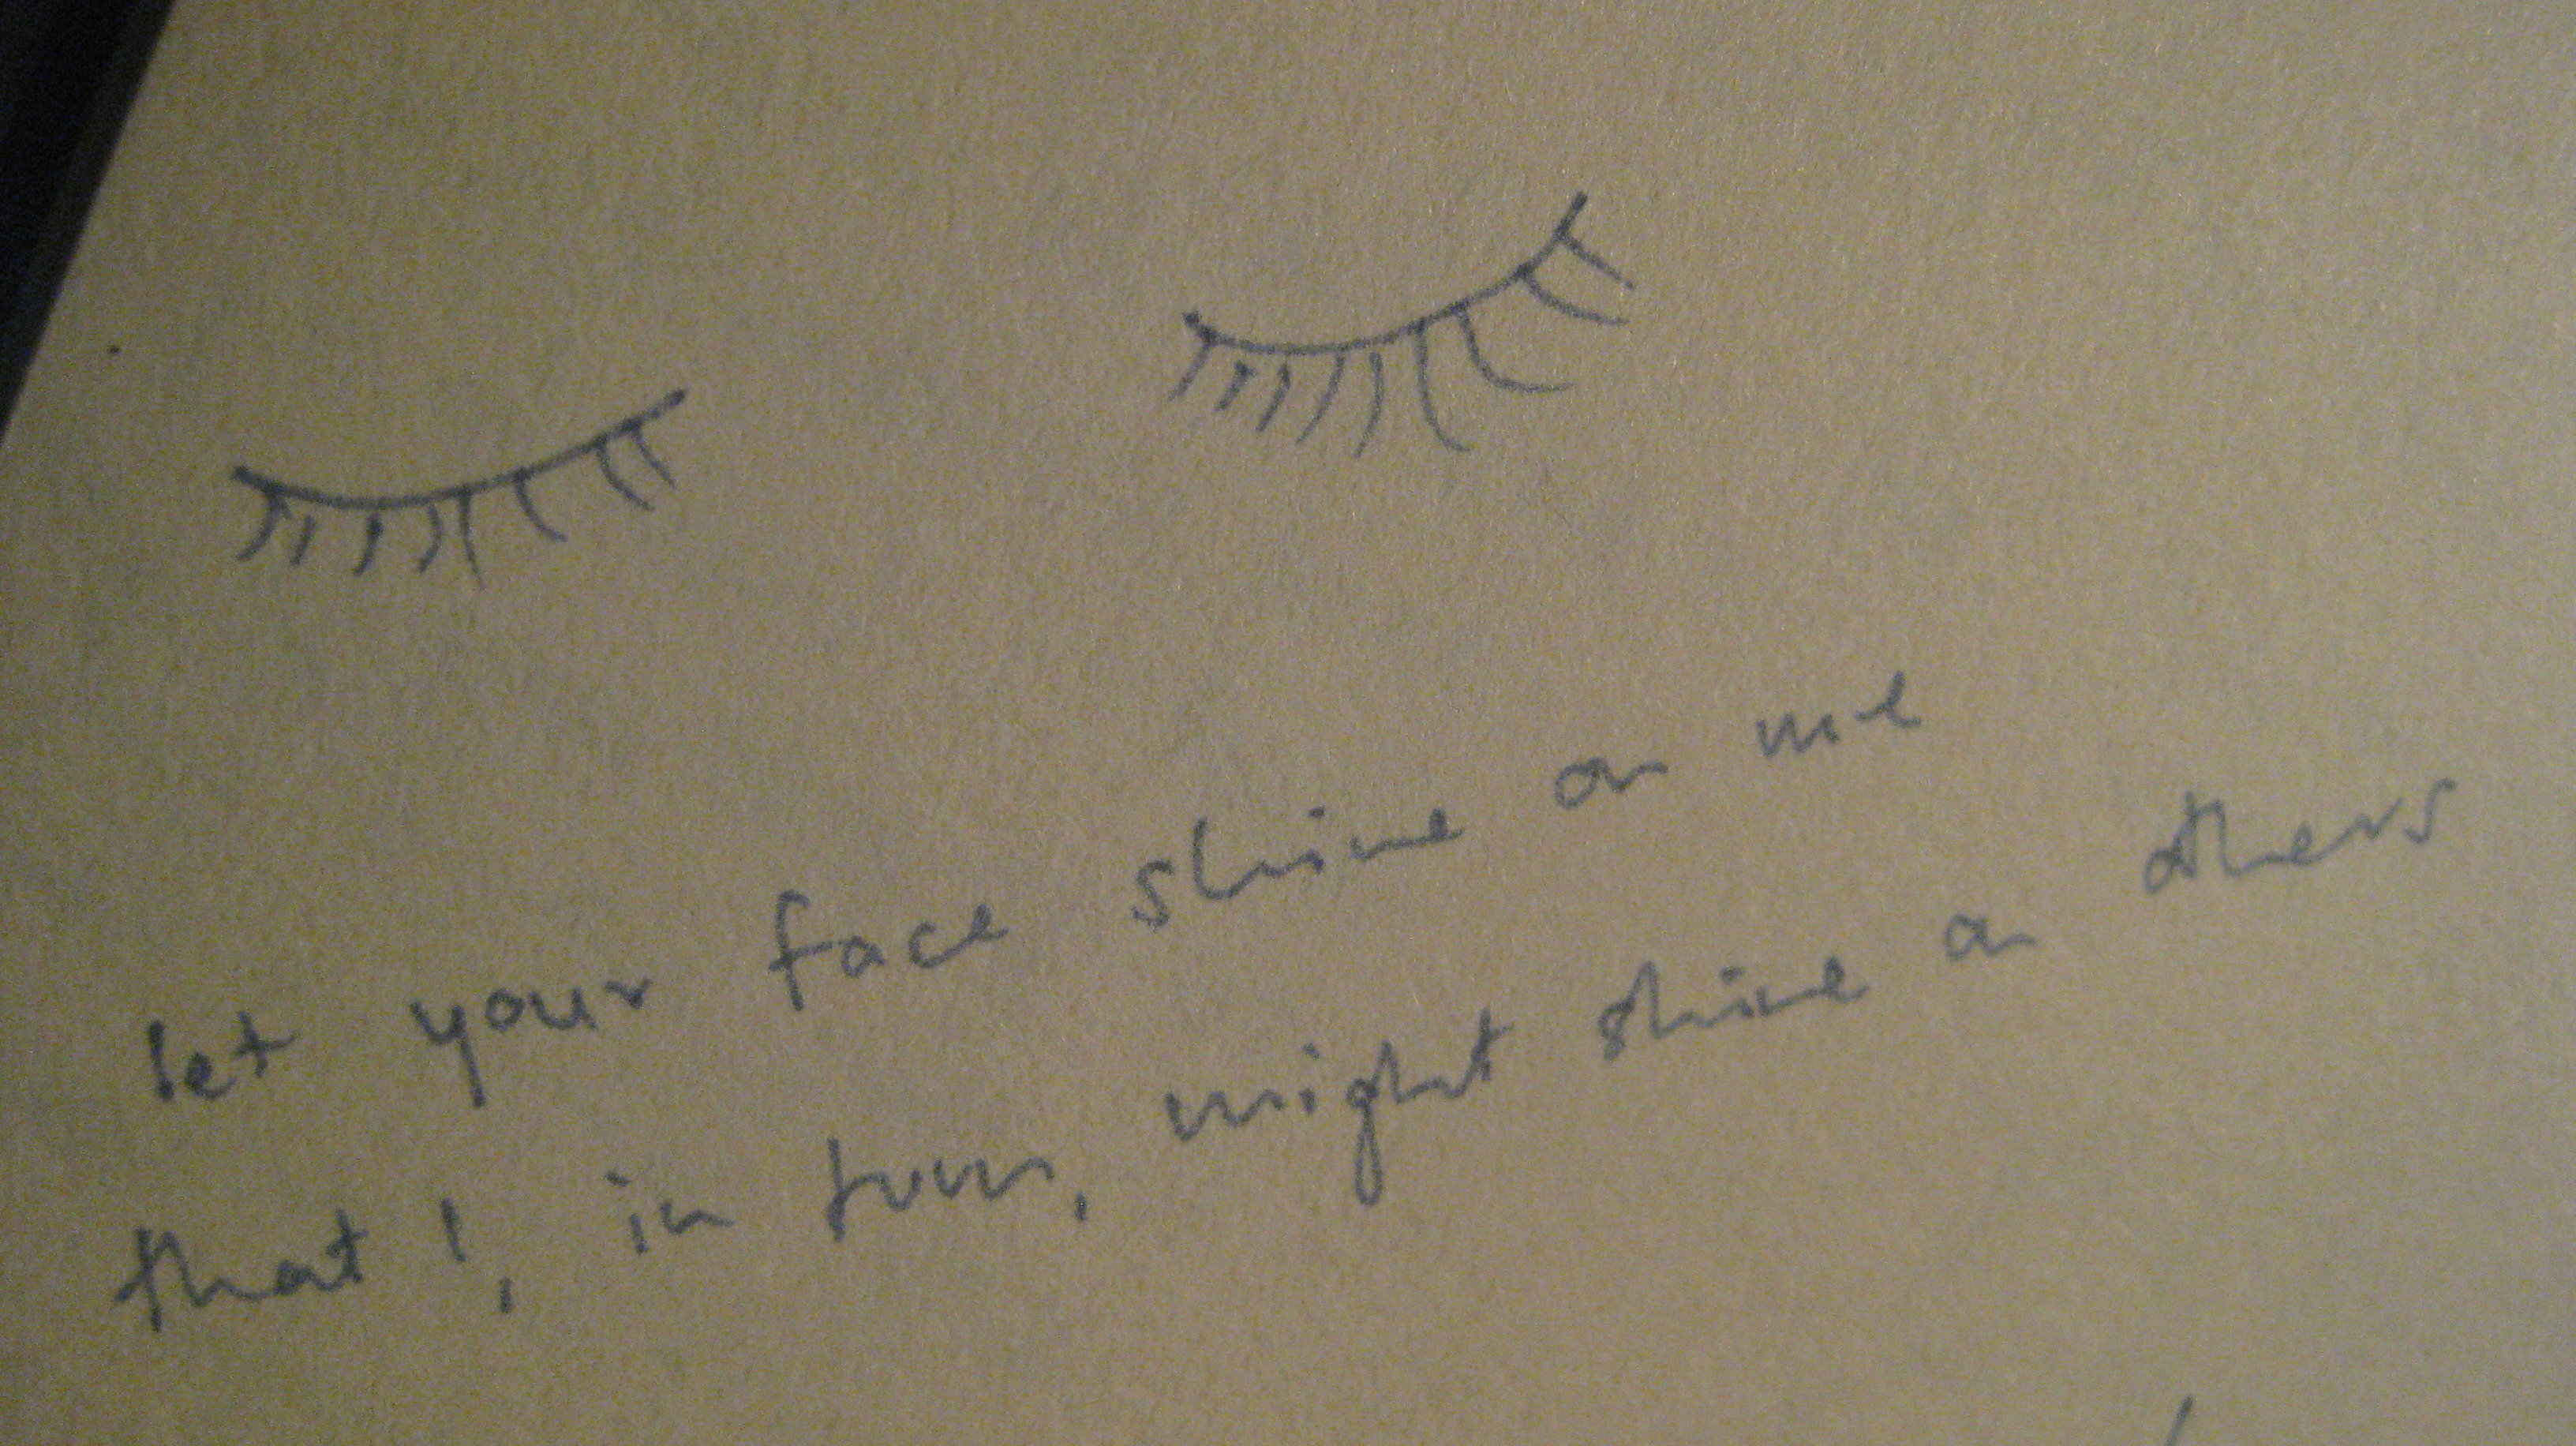 let your face shine on me
that I, in turn, might shine on others